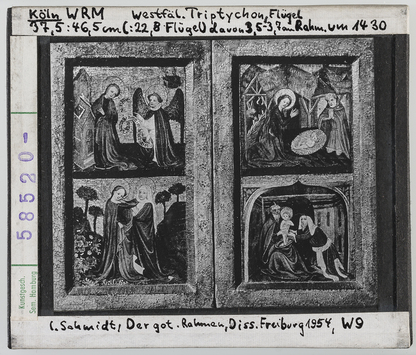 Köln WRM Westfäl. Triptychon, Flügel
37,5:46,5cm (:22,8 Flügel) davon 3,5-3,7 am Rahm. um 1430
58520-
Kunstgesch.
Sem. Hamburg
C. Schmidt, Der got. Rahmen, Diss. Freiburg 1954, W9